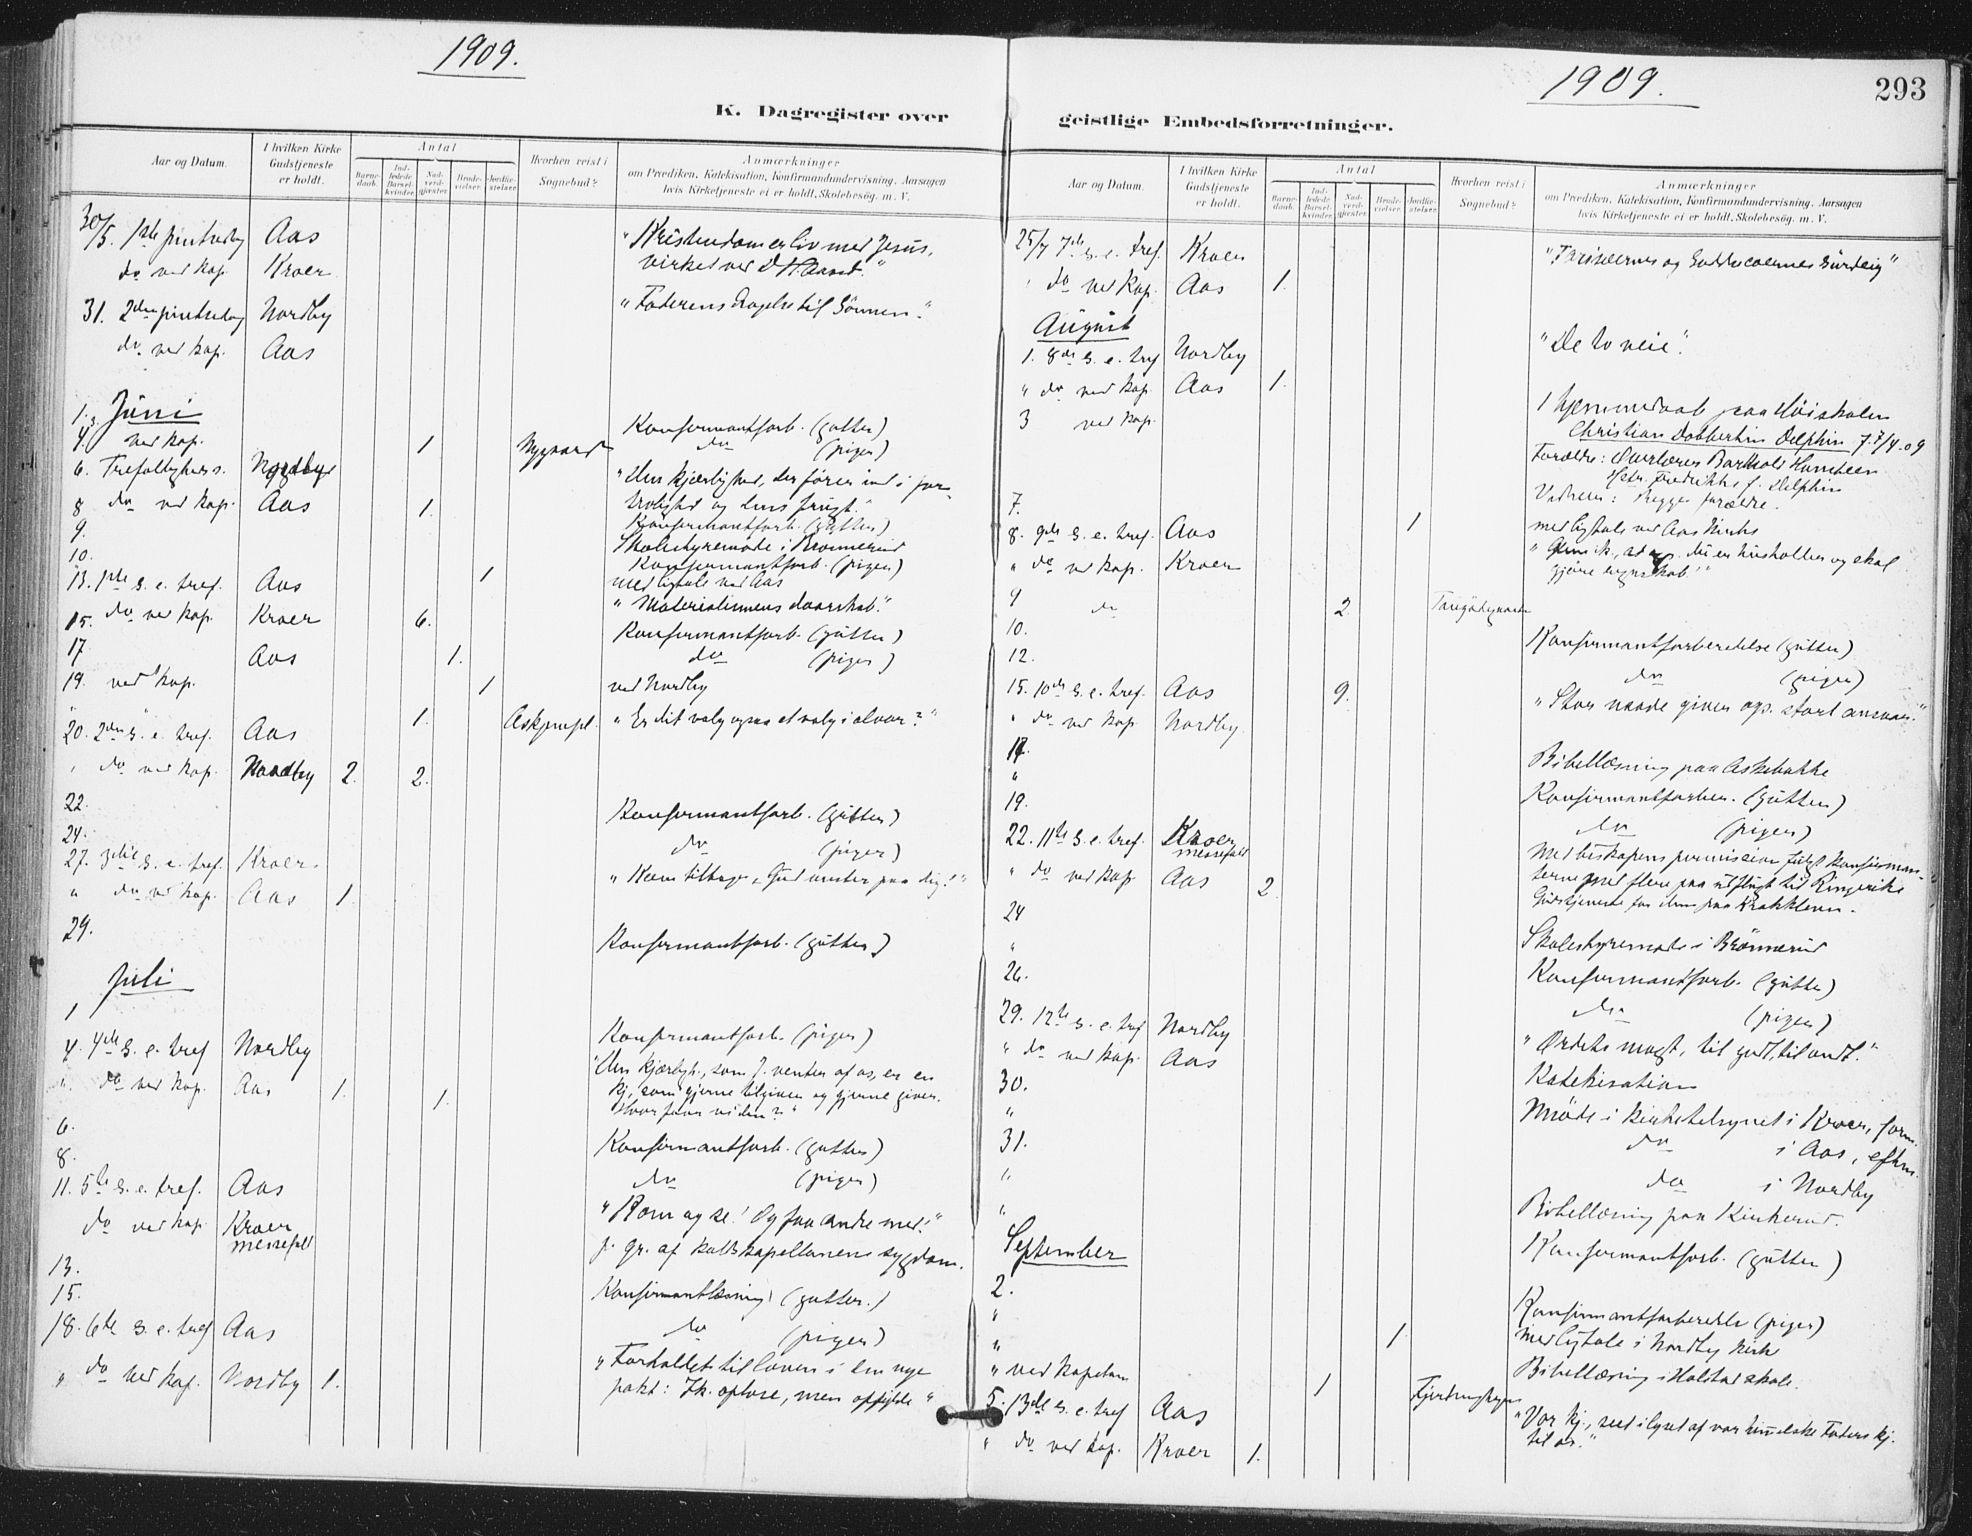 1909.
K. Dagregister over
Aar og Datum.
I hvilken Kirke Gudstjeneste er holdt.
Antal
Barne-daab.
Ind-ledede Barsel-kvinder.
Nad-verd-gjæster.
Brude-vielser.
Jordfæ-stelser.
Hvorhen reist i Sognebud?
Anmærkninger
om Prædiken, Katekisation, Konfirmandundervisning, Aarsagen
hvis Kirketjeneste ei er holdt, Skolebesøg m. V.
30/5. 1ste pintsedag Aas "Kristendom er liv med Jesus,
do ved kap. Kroer virket ved D. H. Aand."
31. 2den pintsedag Nordby "Faderens Dragelse til Sønnen."
do ved kap. Aas
Juni
1. Konfirmantforb. (gutter)
ved kap. 1 Nygaard do (piger)
6. Trefoldighets. Nordby "Den kjærlighed, der fører ind i for-
do ved kap. Aas 1. trolighed og dens frugt."
8 Konfirmantforb. (gutter)
9. Skolestyremøde i Brønnerud
10. Konfirmantforb. (piger)
13. 1ste s. e. tref. Aas 1 med ligtale ved Aas
do ved kap. Kroer 6. "Materialismens daarskab."
15. Konfirmantforb. (gutter)
17 Aas 1. do (piger)
19. ved kap. 1 ved Nordby
20. 2den s. e. tref. Aas 1. "Er dit valg ogsaa et valg i alvor?"
" do ved kap. Nordby 2. 2.
22. Konfirmantforb. (gutter)
24. do (piger)
27. 3die s. e. tref. Kroer. "Kom tilbage, Gud venter paa dig!"
" do ved kap. Aas 1.
29. Konfirmantforb. (gutter)
Juli
1 Konfirmantforb. (piger)
4. 4de s. e. tref Nordby "Den kjærligh., som J. venter af os, er en
" do ved kap. Aas 1. 1. kj, som gjerne tilgiver og gjerne giver.
Hvor faar vi den?"
6. Konfirmantforb. (gutter)
8. do (piger)
11. 5te s. e. tref. Aas "Kom og se! Og faa andre med!"
do ved kap. Kroer messefald f. gr. af kaldskapellanens sygdom.
13. Konfirmantlæsning (gutter.)
15. do (piger)
18. 6te s. e. tref Aas "Forholdet til loven i den nye
" do ved kap. Nordby 1. pakt: Ik. opløse, men opfylde"
1909.
293
geistlige Embedsforretninger.
Aar og Datum.
I hvilken Kirke Gudstjeneste er holdt.
Antal
Barne-daab.
Ind-ledede Barsel-kvinder.
Nad-verd-gjæster.
Brude-vielser.
Jordfæ-stelser.
Hvorhen reist i Sognebud?
Anmærkninger
om Prædiken, Katekisation, Konfirmandundervisning, Aarsagen
hvis Kirketjeneste ei er holdt, Skolebesøg m. V.
25/7 7de s. e. tref. Kroer "Farisæernes og Sadducæernes surdeig"
" do ved kap. Aas 1.
August
1. 8de s. e. tref Nordby "De to veie".
" do ved kap. Aas 1.
3 ved kap. 1 hjemmedaab paa Høiskolen
Christian Dobbertin Delphin f. 7/4.09
Forældre: Overlærer Barthold Hansteen
Hstr. Fredrikke f. Delphin
Vidner: Begge forældre.
7. 1 med ligtale ved Aas Kirke
8. 9de s. e. tref. Aas du er husholder og skal
" do ved kap. Kroer gjøre regnskab!"
9 do 2.
10. Konfirmantforberedelse (gutter)
12. do (piger)
15. 10de s. e. tref. Aas 9. "Stor naade giver ogs. stort ansvar."
" do ved kap. Nordby.
17. Bibellæsning paa Askebakke
" Konfirmantforber. (gutter)
19. do (piger)
22. 11te s. e. tref. Kroer messefald Med biskopens permission fulgt konfirman-
" do ved kap. Aas 2. terne med flere paa udflugt til Ringerike
Gudstjeneste for dem paa Krokkleven.
24 Skolestyremøde i Brønnerud
" Konfirmantforb. (gutter)
26. do (piger)
29. 12te s. e. tref Nordby "Ordets magt, til godt, til ondt."
" do ved kap. Aas Katekisation
30. Møde i kirketilsynet i Kroer, form.
" do i Aas, efterm.
31. do i Nordby
" Bibellæsning paa Kinkerud.
" Konfirmantforb. (gutter)
September
2. Konfirmantforberedelse (piger)
" 1 med ligtale i Nordby kirke
" Bibellæsning i Holstad skole.
" ved kapelan 1
5. 13de s. e. tref Aas "Vor kj., set i lyset af vor himmelske Faders kj.
" do ved kap. Kroer 1. til os."